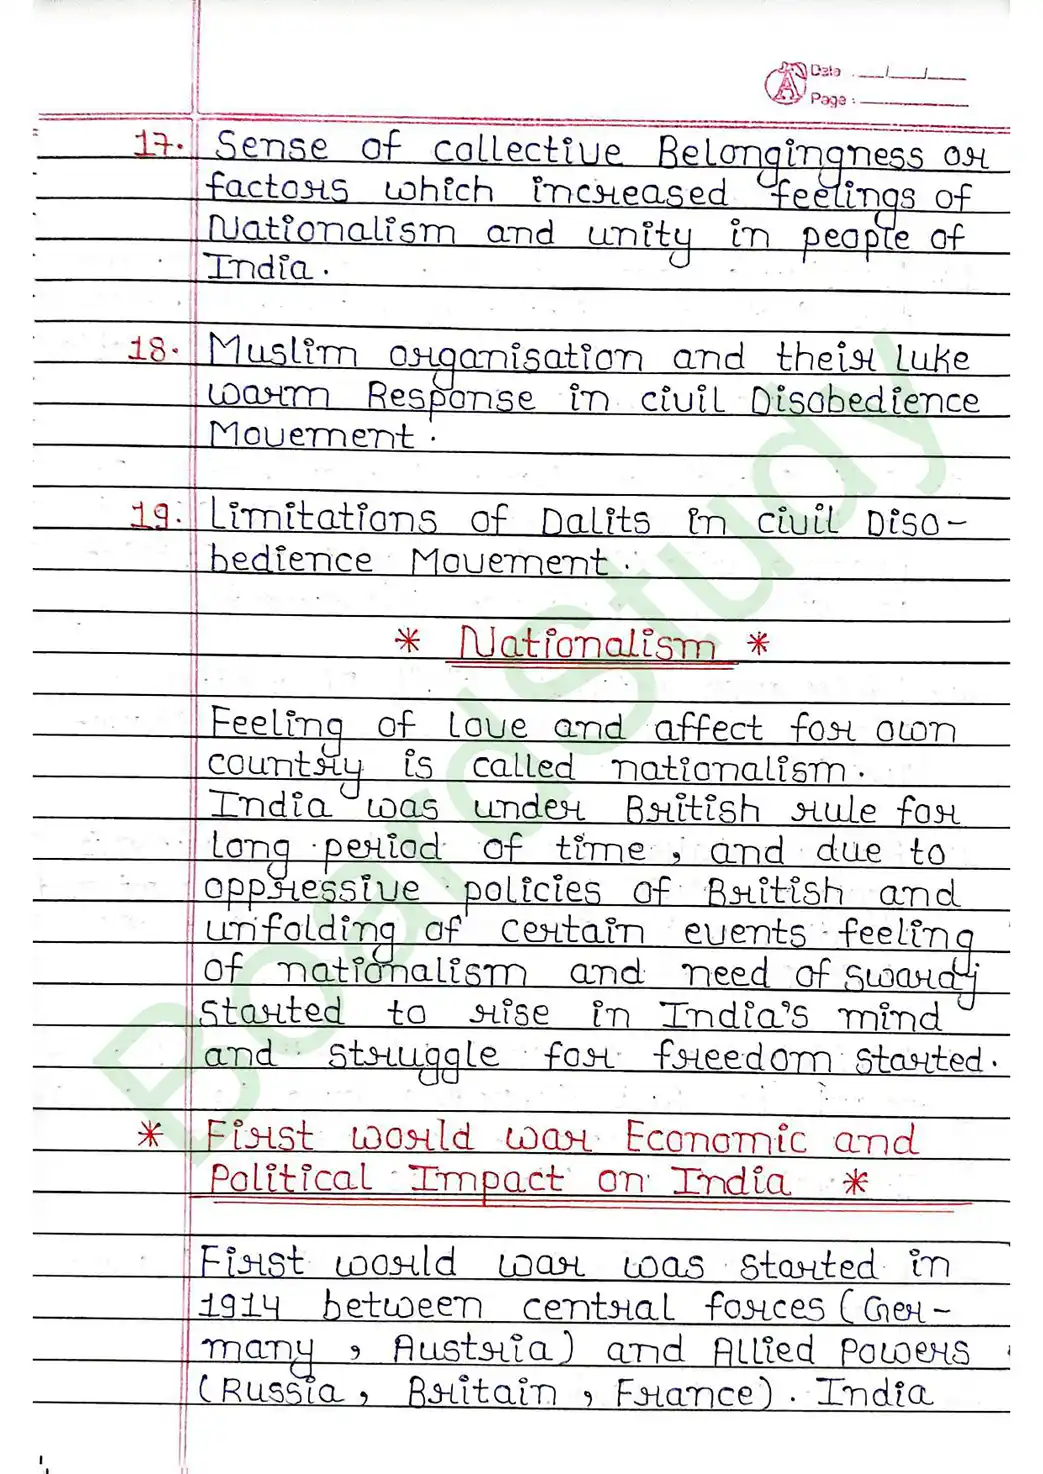 Date : __/__/__
Page :
17. Sense of collective Belongingness or
factors which increased feelings of
Nationalism and unity in people of
India.
18. Muslim organisation and their Luke
warm Response in civil Disobedience
Movement.
19. Limitations of Dalits in civil Diso-
bedience Movement.
* Nationalism *
Feeling of love and affect for own
country is called nationalism.
India was under British rule for
long period of time, and due to
oppressive policies of British and
unfolding of certain events feeling
of nationalism and need of swaraj
started to rise in India's mind
and struggle for freedom started.
* First world war Economic and
Political Impact on India *
First world war was started in
1914 between central forces (Ger-
many, Austria) and Allied Powers
(Russia, Britain, France). India
BoardStudy